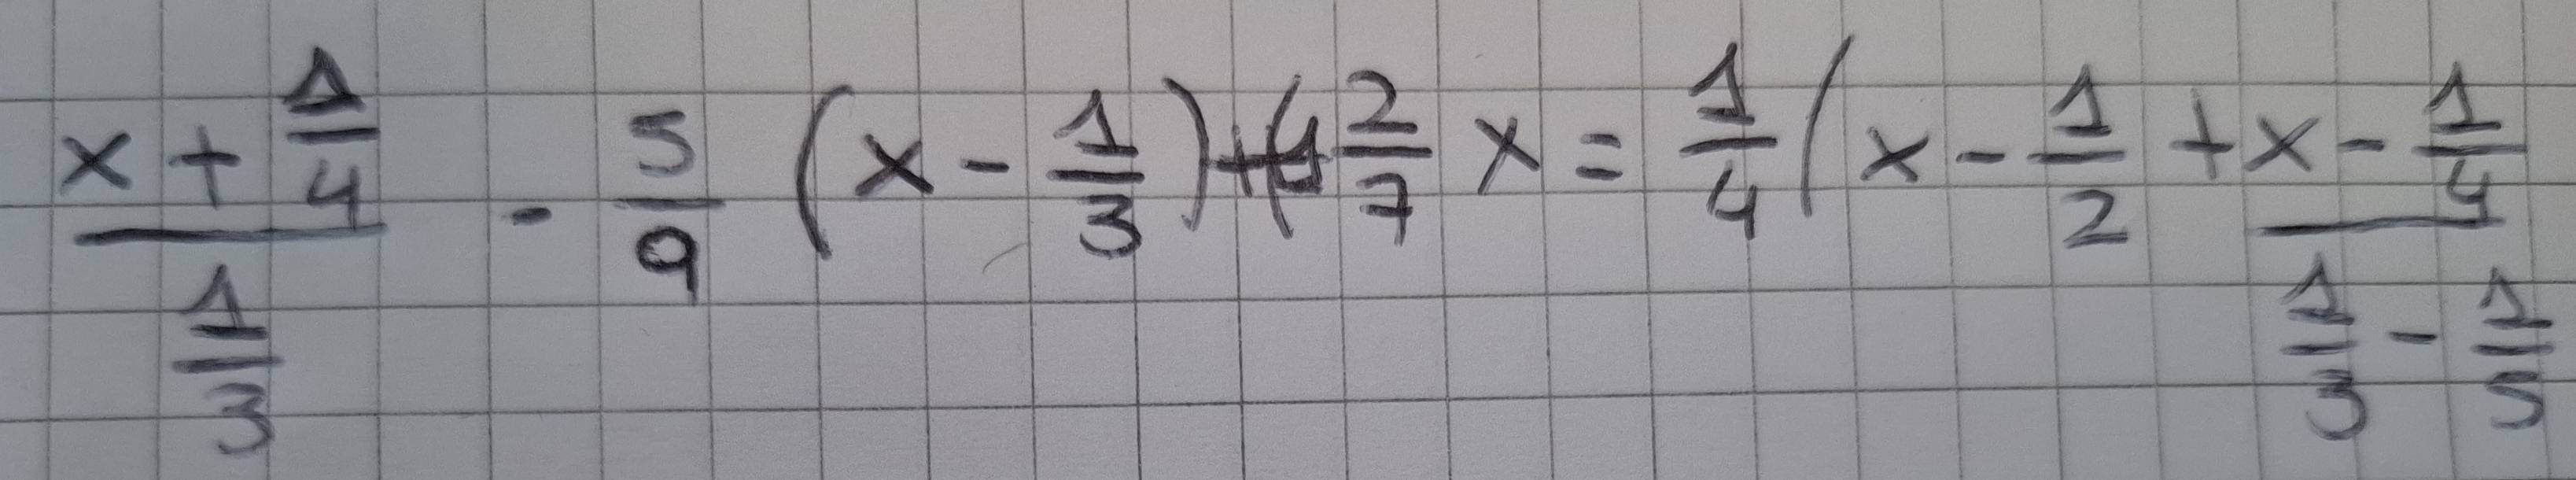 (x + 1/4)/(1/3) - 5/9 (x - 1/3) + 2/7 x = 1/4 (x - 1/2 + (x - 1/4)/(1/3 - 1/5)